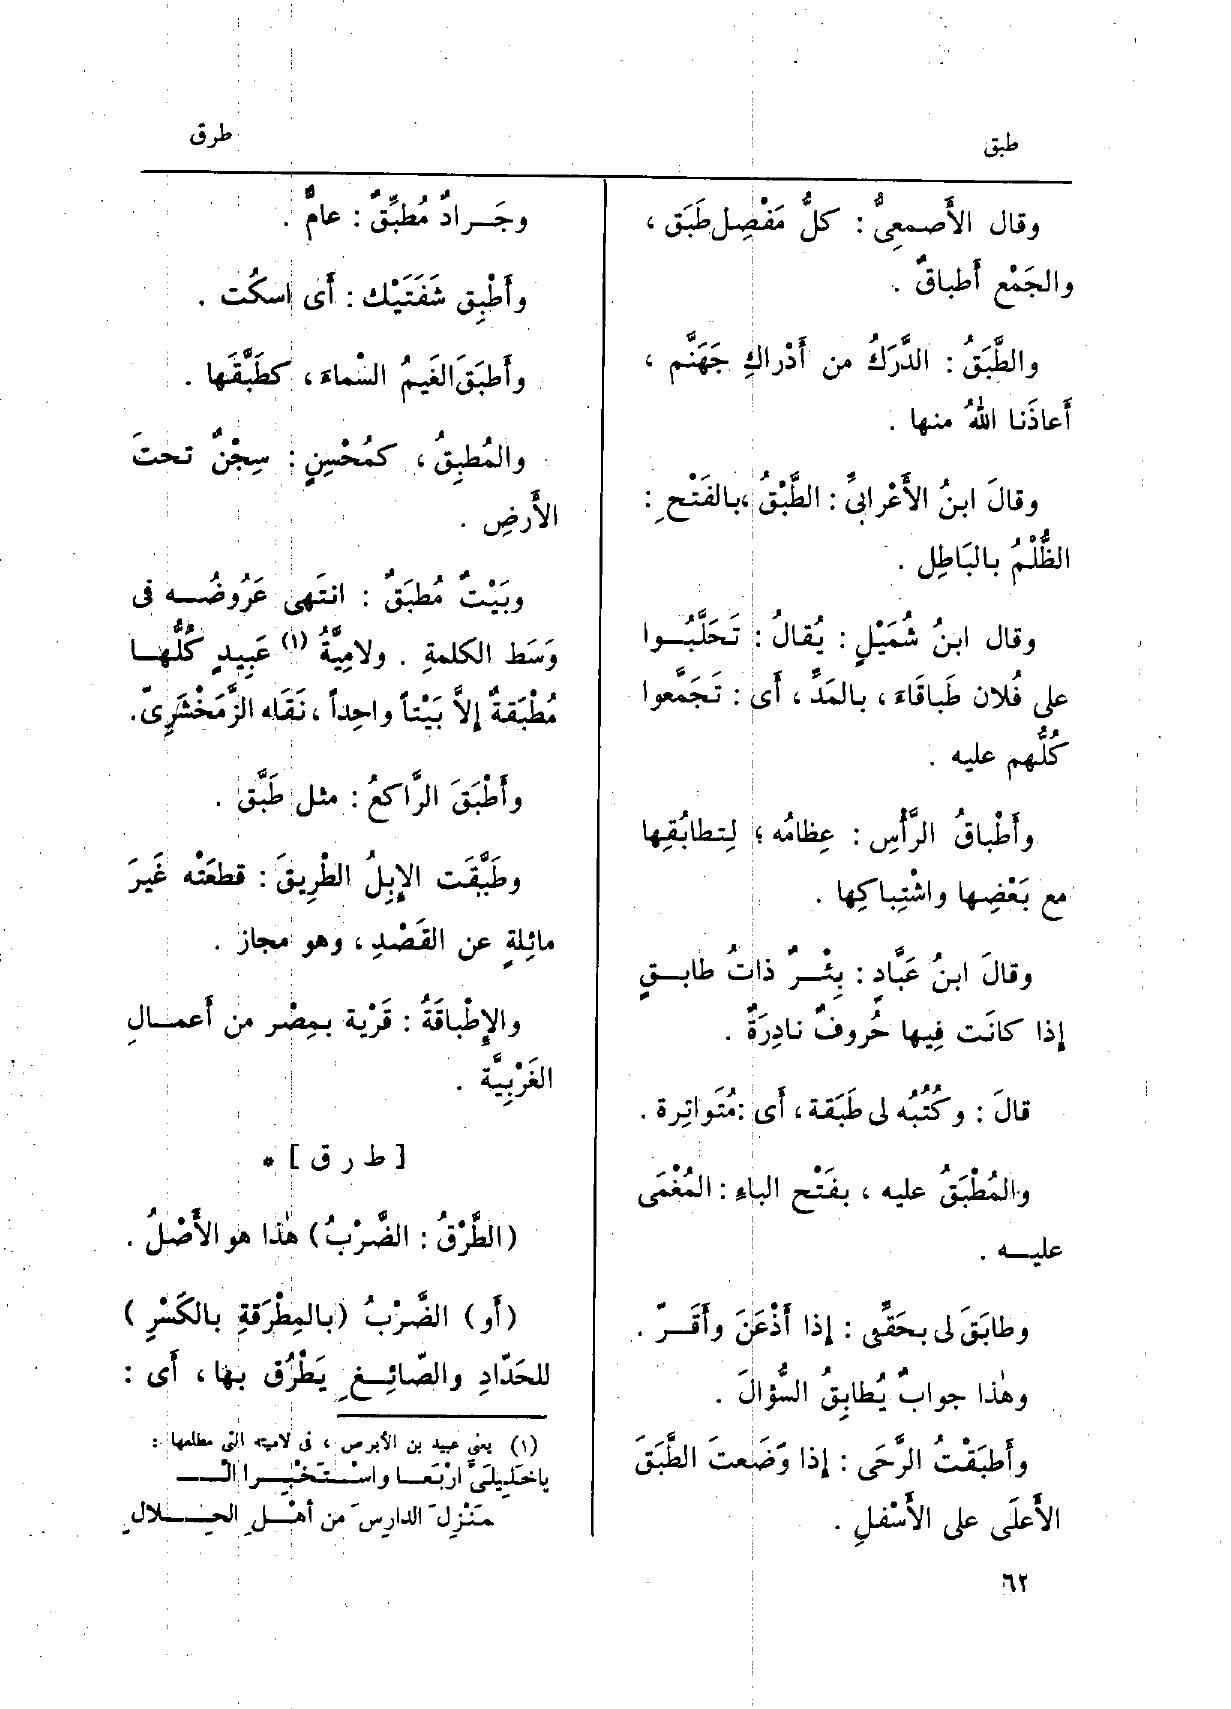 طبق
طرق
وقال الأَصمعِىُّ : كلُّ مَفْصِل طَبَق ،
والجَمْع أَطباقٌ .
والطَّبَقُ : الدَّرَكُ من أَدْراكِ جَهَنَّم ،
أَعاذَنا اللهُ منها .
وقالَ ابنُ الأَعْرابىِّ : الطَّبْقُ ،بالفَتْح ِ :
الظُّلْمُ بالبَاطِل .
وقال ابنُ شُمَيْلٍ : يُقالُ : تَحَلَّبُـوا
على فُلان طَباقَاءَ ، بالمَدِّ ، أَى : تَجَمَّعوا
كُلُّهم عليه .
وأَطْباقُ الرَّأْسِ : عِظامُه ؛ لِتطابُقِها
مع بَعْضِها واشْتِباكِها .
وقالَ ابنُ عَبَّادٍ : بِئْـرٌ ذاتُ طابـقٍ
إذا كانَت فِيها حُروفٌ نادِرَةٌ .
قالَ : وكُتُبُه لى طَبَقة ، أَى :مُتَواتِرة .
والمُطْبَقُ عليه ، بفَتْح الباءِ : المُغْمَى
عليـه .
وطابَقَ لى بحَقِّى : إذا أَذْعَنَ وأَقَـرّ .
وهٰذا جوابٌ يُطابِقُ السُّؤالَ .
وأَطبَقْتُ الرَّحَى : إذا وَضَعتَ الطَّبَقَ
الأَعلَى على الأَسْفلِ .
وجَـرادٌ مُطبِّقٌ : عامٌّ .
وأَطْبِق شَفَتَيْك : أَى اسكُت .
وأَطبَقَ الغَيمُ السْماءَ ، كطَبَّقَها .
والمُطبِقُ ، كمُحْسِنٍ : سِجْنٌ تحتَ
الأَرضِ .
وبَيْتٌ مُطبَقٌ : انتَهى عَرُوضُـه فى
وَسَط الكلمةِ . ولامِيَّةُ (١) عَبِيدٍ كُلُّهـا
مُطْبَقةٌ إلاَّ بَيْتاً واحِداً ، نَقَله الزَّمَخْشَرِىّ.
وأَطْبَقَ الرَّاكعُ : مثل طَبَّق .
وطَبَّقَت الإِبِلُ الطْرِيقَ : قطعَتْه غَيرَ
مائِلةٍ عن القَصْدِ ، وهو مجاز .
والإِطْباقَةُ : قَرْية بمِصْر من أَعمـالِ
الغَرْبِيَّة .
[ ط ر ق ] *
(الطَّرْقُ : الضَّرْبُ) هٰذا هو الأَصْلُ .
(أَو) الضَّرْبُ (بالمِطْرَقةِ بالكَسْرِ )
للحَدّادِ والصّائِـغ ِ يَطْرُق بها ، أَى :
(١) يعنى عبيد بن الأبرص ، فى لاميته التى مطلعها :
ياخَلِيلَىَّ ارْبَعـا واسْـتَخْبِـرا الْـ
مَنْزِلَ الدارِسَ من أَهْـلِ الحِـلالِ
٦٢